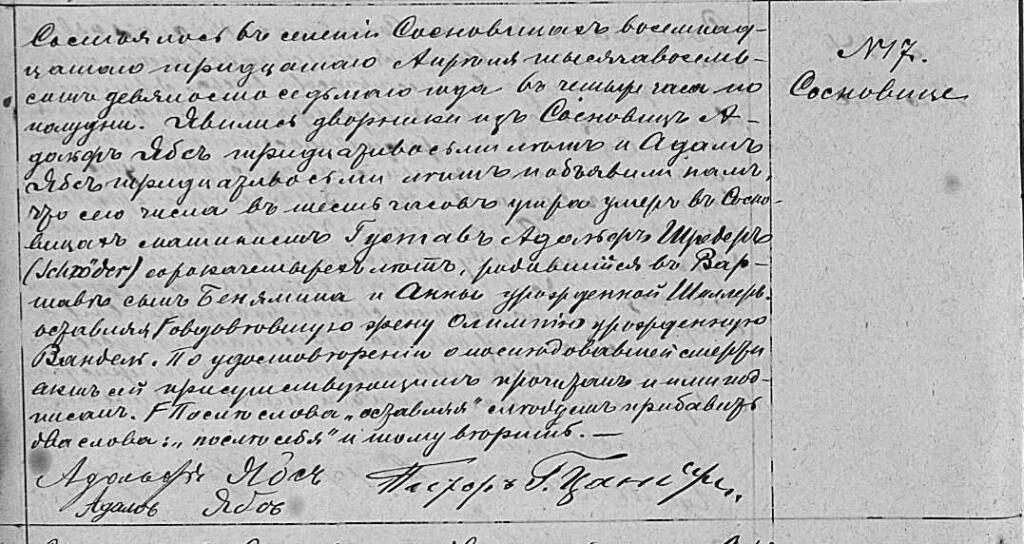 Состоялось въ селеніи Сосновицахъ восемнад-
цатаго тридцатаго Апрѣля тысяча восемь-
сотъ девяносто седьмаго года въ четыре часа по
полудни. Явились дворники изъ Сосновицъ А-
дольфъ Ябсъ тридцати восьми лѣтъ и Адамъ
Ябсъ тридцати восьми лѣтъ и объявили намъ,
что сего числа въ шесть часовъ утра умеръ въ Сосно-
вицахъ машинистъ Густавъ Адольфъ Шредеръ
(Schröder) сорока четырехъ лѣтъ, родившійся въ Вар-
шавѣ сынъ Бенямина и Анны урожденной Шиллеръ.
оставляя Г овдовѣвшую жену Олимпію урожденную
Вандель. По удостовѣреніи о послѣдовавшей смерти
актъ сей присутствующимъ прочитанъ и ими под-
писанъ. Г Послѣ слова „оставляя" слѣдуетъ прибавить
два слова: „послѣ себя" и тому вѣрить. —
Адольфъ Ябсъ Пасторъ Г.
Адамъ Ябсъ
N 17.
Сосновице